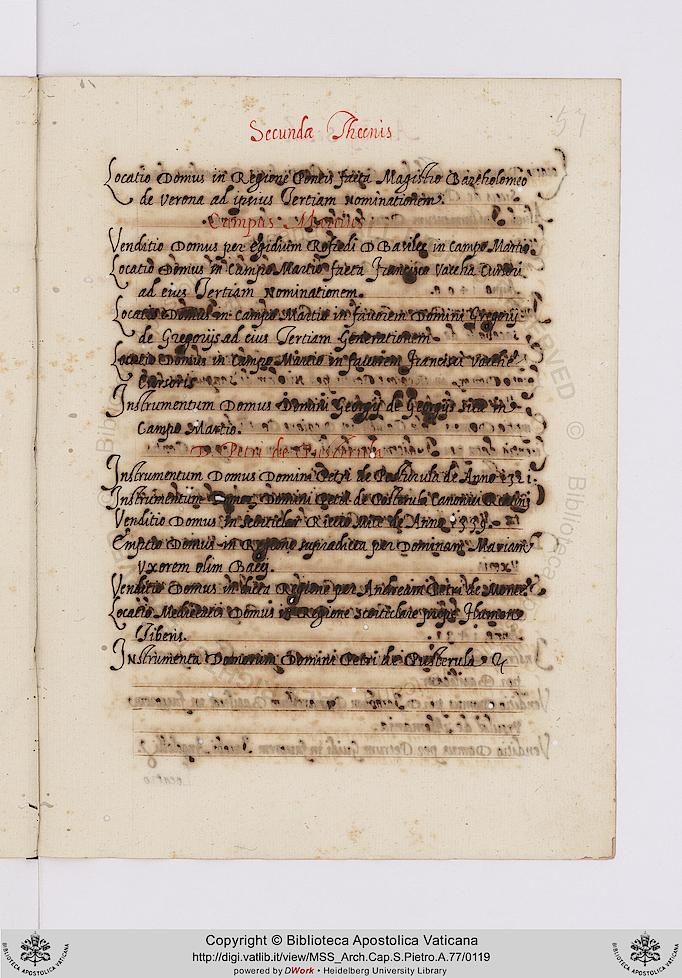 57
Secunda Theenis
Locatio Domus in Regione Pontis facta Magistro Bartholomeo
de Verona ad ipsius Tertiam Nominationem.
Campus Martius
Venditio Domus per Egidium Rofredi D Basilee in Campo Martio
Locatio Domus in Campo Martio facta Francisco Vachia Cursori
ad eius Tertiam Nominationem.
Locatio Domus in Campo Martio in favorem Domini Gregorij
de Gregorijs ad eius Tertiam Generationem
Locatio Domus in Campo Martio in favorem Francisci
Cursoris
Instrumentum Domus Domini Georgij de Georgijs sita in
Campo Martio.
D. Petri de
Instrumentum Domus Domini Petri de Pusterula de Anno
Instrumentum Domini Petri de Canonici
Venditio Domus in de Anno 1339
Emptio Domus in Regione supradicta per Dominam Mariam
Vxorem olim
Venditio Domus in dicta Regione per Andream Petri de
Locatio Medietatis Domus in Regione prope Flumen
Tiberis.
Instrumenta Domorum Domini Petri de Pusterula
Copyright © Biblioteca Apostolica Vaticana
http://digi.vatlib.it/view/MSS_Arch.Cap.S.Pietro.A.77/0119
powered by DWork • Heidelberg University Library